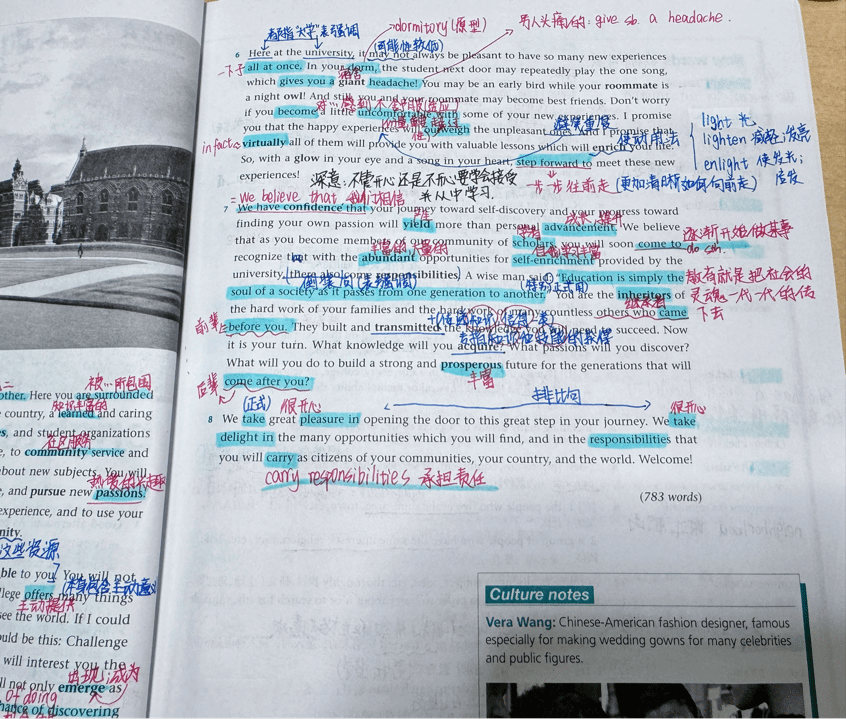 都是指"大学"表强调
dormitory(原型)
另人头痛的: give sb. a headache.
(可能性较低)
6 Here at the university, it may not always be pleasant to have so many new experiences
一下子
all at once. In your dorm, the student next door may repeatedly play the one song,
which gives you a giant headache! You may be an early bird while your roommate is
a night owl! And still you and your roommate may become best friends. Don't worry
if you become a little uncomfortable with some of your new experiences. I promise
you that the happy experiences will outweigh the unpleasant ones. And I promise that
in fact
virtually all of them will provide you with valuable lessons which will enrich your life!
使动用法
light 光
lighten 减轻;发亮
enlight 使发光;
启发
So, with a glow in your eye and a song in your heart, step forward to meet these new
experiences!
深意:不管开心还是不开心要学会接受
并从中学习.
一步步往前走(更加清晰如何向前走)
= We believe that 我们相信
7 We have confidence that your journey toward self-discovery and your progress toward
finding your own passion will yield more than personal advancement. We believe
that as you become members of our community of scholars, you will soon come to
逐渐开始做某事
do sth.
recognize that with the abundant opportunities for self-enrichment provided by the
university, there also come responsibilities. A wise man said: "Education is simply the
倒装句(表强调)
教育就是把社会的
soul of a society as it passes from one generation to another." You are the inheritors of
灵魂一代一代的传
下去
the hard work of your families and the hard work of many countless others who came
前辈
before you. They built and transmitted the knowledge you will need to succeed. Now
it is your turn. What knowledge will you acquire? What passions will you discover?
What will you do to build a strong and prosperous future for the generations that will
丰富
后辈
come after you?
(正式)
很开心
排比句
很开心
8 We take great pleasure in opening the door to this great step in your journey. We take
delight in the many opportunities which you will find, and in the responsibilities that
you will carry as citizens of your communities, your country, and the world. Welcome!
carry responsibilities 承担责任
(783 words)
Culture notes
Vera Wang: Chinese-American fashion designer, famous
especially for making wedding gowns for many celebrities
and public figures.
被…所包围
other. Here you are surrounded
country, a learned and caring
s, and student organizations
e, to community service and
about new subjects. You will
e, and pursue new passions.
experience, and to use your
nity.
这些资源
ble to you. You will not
llege offers many things
主动提供
see the world. If I could
ould be this: Challenge
will interest you the
出现;成为
ll not only emerge as
of doing
hance of discovering